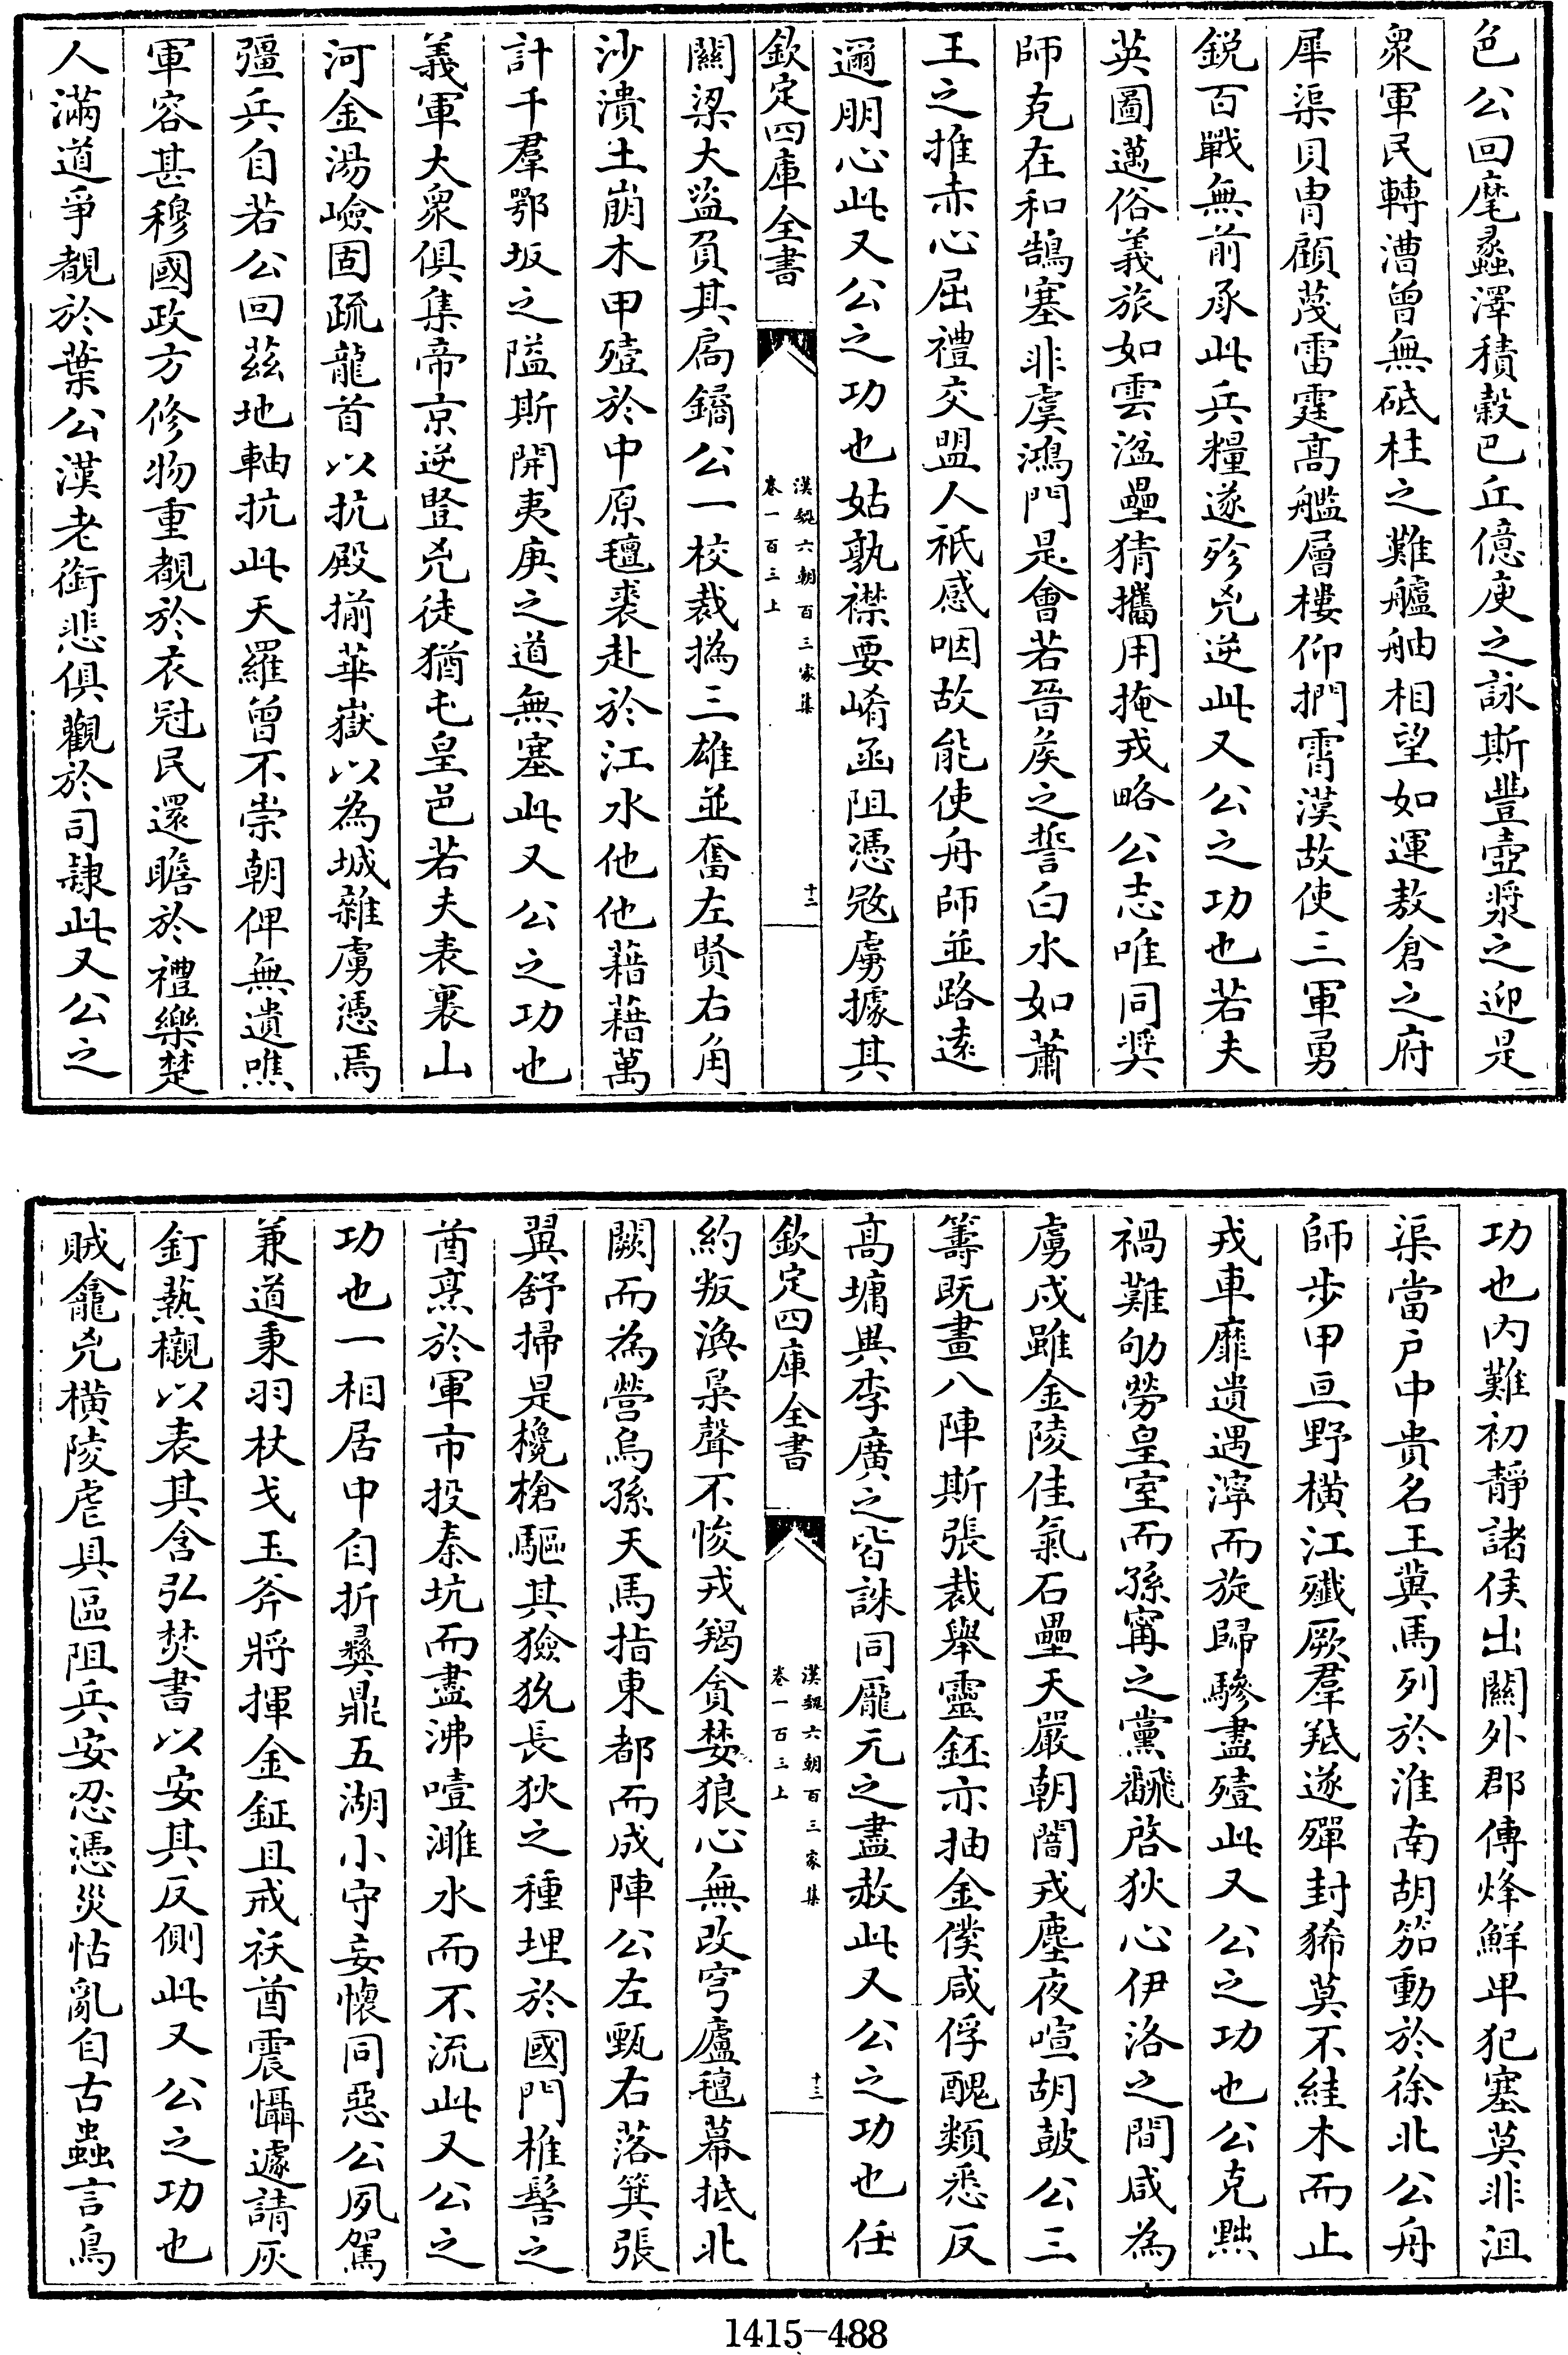 色公回麾蠡澤積穀巴丘億庾之詠斯豐壺漿之迎是
衆軍民轉漕曾無砥柱之難艫舳相望如運敖倉之府
犀渠貝胄顧蔑雷霆高艦層樓仰捫霄漢故使三軍勇
鋭百戰無前承此兵糧遂殄兇逆此又公之功也若夫
英圖邁俗義旅如雲溢壘猜攜用掩戎略公志唯同奨
師克在和鵠塞非虞鴻門是㑹若晉侯之誓白水如蕭
王之推赤心屈禮交盟人祇感咽故能使舟師並路逺
邇朋心此又公之功也姑孰襟要崤函阻憑㓂虜據其
欽定四庫全書
漢魏六朝百三家集
卷一百三上
十二
關梁大盜負其扃鐍公一校裁撝三雄並奮左賢右角
沙潰土崩木甲殪於中原氊裘赴於江水他他藉藉萬
計千羣鄂坂之隘斯開夷庚之道無塞此又公之功也
義軍大衆俱集帝京逆豎兇徒猶屯皇邑若夫表裏山
河金湯嶮固疏龍首以抗殿揃華嶽以為城雜虜憑焉
彊兵自若公回茲地軸抗此天羅曾不崇朝俾無遺噍
軍容甚穆國政方修物重覩於衣冠民還瞻於禮樂楚
人滿道爭覩於葉公漢老銜悲俱觀於司隸此又公之
功也内難初靜諸侯出關外郡傳烽鮮卑犯塞莫非沮
渠當戶中貴名王冀馬列於淮南胡笳動於徐北公舟
師步甲亘野橫江殲厥羣羝遂殫封狶莫不絓木而止
戎車靡遺遇濘而旋歸驂盡殪此又公之功也公克黜
禍難劬勞皇室而孫甯之黨翻啓狄心伊洛之間咸為
虜戍雖金陵佳氣石壘天嚴朝闇戎塵夜喧胡鼓公三
籌既畫八陣斯張裁舉靈鉟亦抽金僕咸俘醜類悉反
高墉異李廣之皆誅同龎元之盡赦此又公之功也任
欽定四庫全書
漢魏六朝百三家集
卷一百三上
十三
約叛渙梟聲不悛戎羯貪婪狼心無改穹廬氊幕抵北
闕而為營烏孫天馬指東都而成陣公左甄右落箕張
翼舒掃是欃槍驅其獫狁長狄之種埋於國門椎髻之
酋烹於軍市投秦坑而盡沸噎濉水而不流此又公之
功也一相居中自折彞鼎五湖小守妄懷同惡公夙駕
兼道秉羽杖戈玉斧將揮金鉦且戒袄酋震慴遽請灰
釘爇櫬以表其含弘焚書以安其反側此又公之功也
賊龕兇橫陵虐具區阻兵安忍憑災怙亂自古蟲言鳥
1415-488